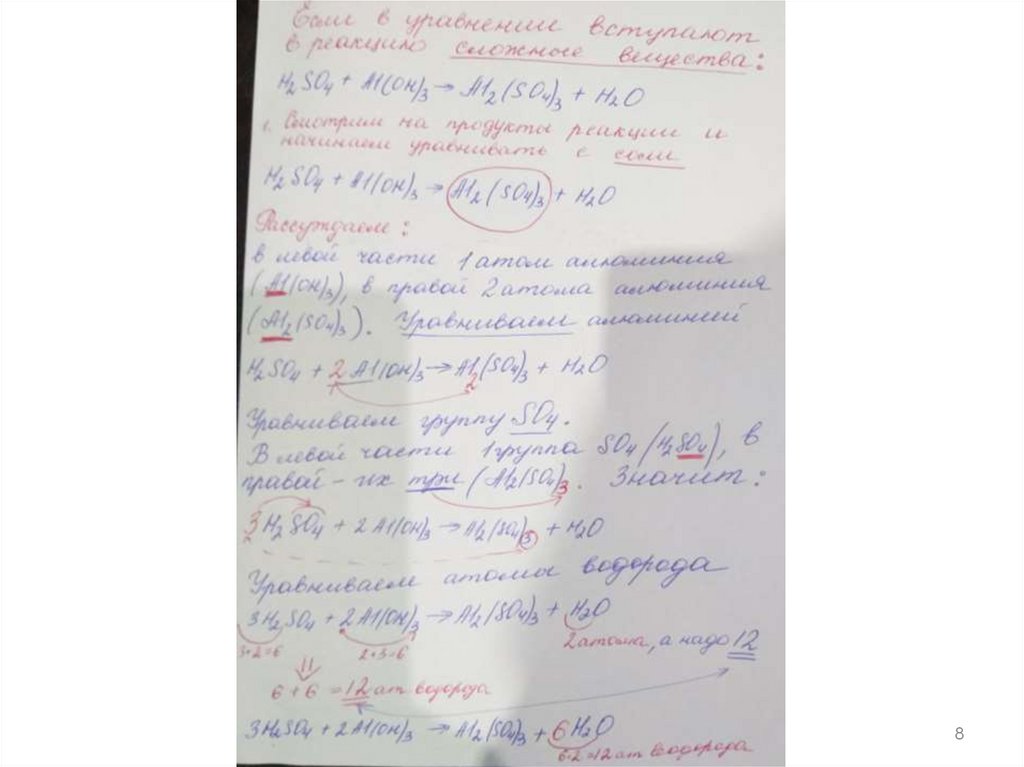 Если в уравнении вступают
в реакцию сложные вещества:
H₂SO₄ + Al(OH)₃ → Al₂(SO₄)₃ + H₂O
1. Смотрим на продукты реакции и
начинаем уравнивать с соли
H₂SO₄ + Al(OH)₃ → Al₂(SO₄)₃ + H₂O
Рассуждаем:
в левой части 1 атом алюминия
(Al(OH)₃), в правой 2 атома алюминия
(Al₂(SO₄)₃). Уравниваем алюминий
H₂SO₄ + 2Al(OH)₃ → Al₂(SO₄)₃ + H₂O
Уравниваем группу SO₄.
В левой части 1 группа SO₄ (H₂SO₄), в
правой – их три (Al₂(SO₄)₃. Значит:
3H₂SO₄ + 2Al(OH)₃ → Al₂(SO₄)₃ + H₂O
Уравниваем атомы водорода
3H₂SO₄ + 2Al(OH)₃ → Al₂(SO₄)₃ + H₂O
3·2=6 2·3=6 2 атома, а надо 12
6 + 6 = 12 ат водорода
3H₂SO₄ + 2Al(OH)₃ → Al₂(SO₄)₃ + 6H₂O
6·2=12 ат водорода
8